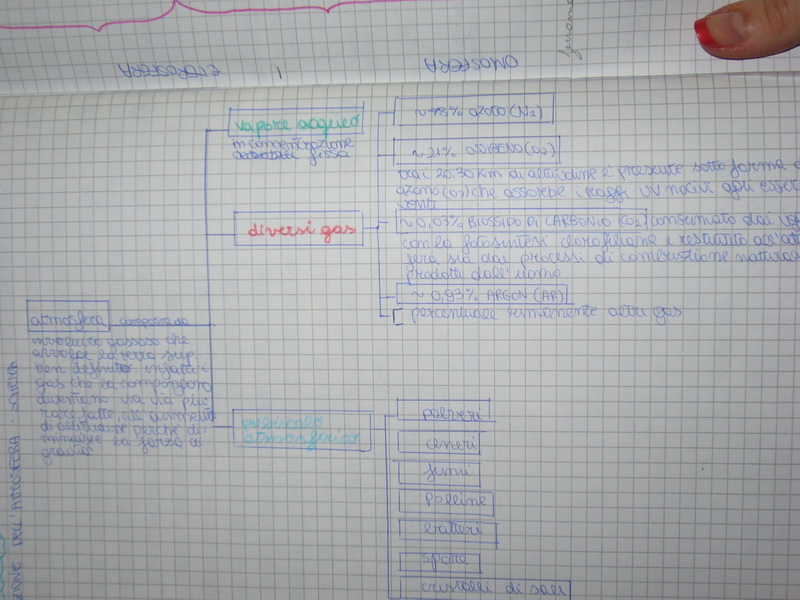 OMOSFERA
ETEROSFERA
vapore acqueo
in concentrazione
fissa
diversi gas
~78% AZOTO (N₂)
~21% OSSIGENO (O₂)
tra i 20.30 Km di altitudine è presente sotto forma
ozono (O₃) che assorbe i raggi UV nocivi agli esseri
venti
~0,03% BIOSSIDO DI CARBONIO (CO₂) consumato dai
con la fotosintesi clorofilliana e restituito all'
fera sia dai processi di combustione
prodotti dall'uomo
~0,93% ARGON (AR)
percentuale rimanente altri gas
atmosfera composta da
involucro gassoso che
avvolge la terra
ben definito infatti i
gas che la compongono
diventano via via più
di altitudine perché di-
minuisce la forza di
gravità
pulviscolo
atmosferico
polveri
ceneri
fumi
polline
batteri
spore
cristalli di sali
DELL'ATMOSFERA SCHEMA